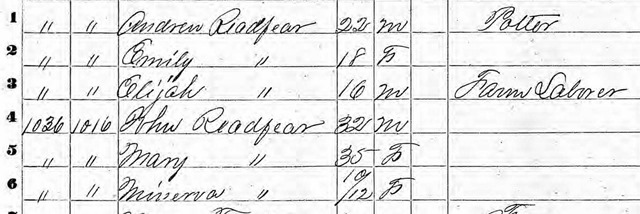 1 " " Andrew Readfear 22 m Potter
2 " " Emily " 18 F
3 " " Elijah " 16 m Farm Laborer
4 1036 1016 John Readfear 32 m
5 " " Mary " 35 F
6 " " Minerva " 10/12 F